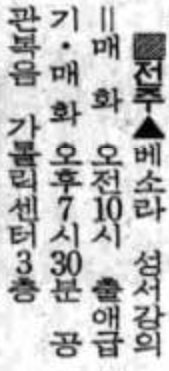 ▨전주▲베소라 성서강의
=매 화 오전10시 출애급
기·매화 오후7시30분 공
관복음 가톨릭센터3층